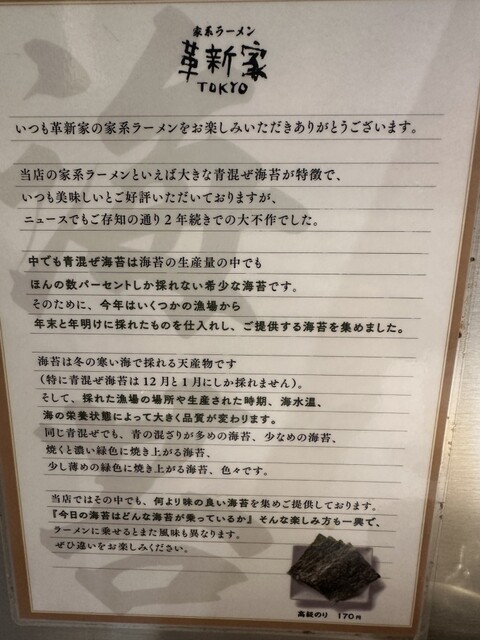 家系ラーメン
革新家
TOKYO
いつも革新家の家系ラーメンをお楽しみいただきありがとうございます。
当店の家系ラーメンといえば大きな青混ぜ海苔が特徴で、
いつも美味しいとご好評いただいておりますが、
ニュースでもご存知の通り2年続きでの大不作でした。
中でも青混ぜ海苔は海苔の生産量の中でも
ほんの数パーセントしか採れない希少な海苔です。
そのために、今年はいくつかの漁場から
年末と年明けに採れたものを仕入れし、ご提供する海苔を集めました。
海苔は冬の寒い海で採れる天産物です
（特に青混ぜ海苔は12月と1月にしか採れません）。
そして、採れた漁場の場所や生産された時期、海水温、
海の栄養状態によって大きく品質が変わります。
同じ青混ぜでも、青の混ざりが多めの海苔、少なめの海苔、
焼くと濃い緑色に焼き上がる海苔、
少し薄めの緑色に焼き上がる海苔、色々です。
当店ではその中でも、何より味の良い海苔を集めご提供しております。
『今日の海苔はどんな海苔が乗っているか』そんな楽しみ方も一興で、
ラーメンに乗せるとまた風味も異なります。
ぜひ違いをお楽しみください。
高級のり 170円